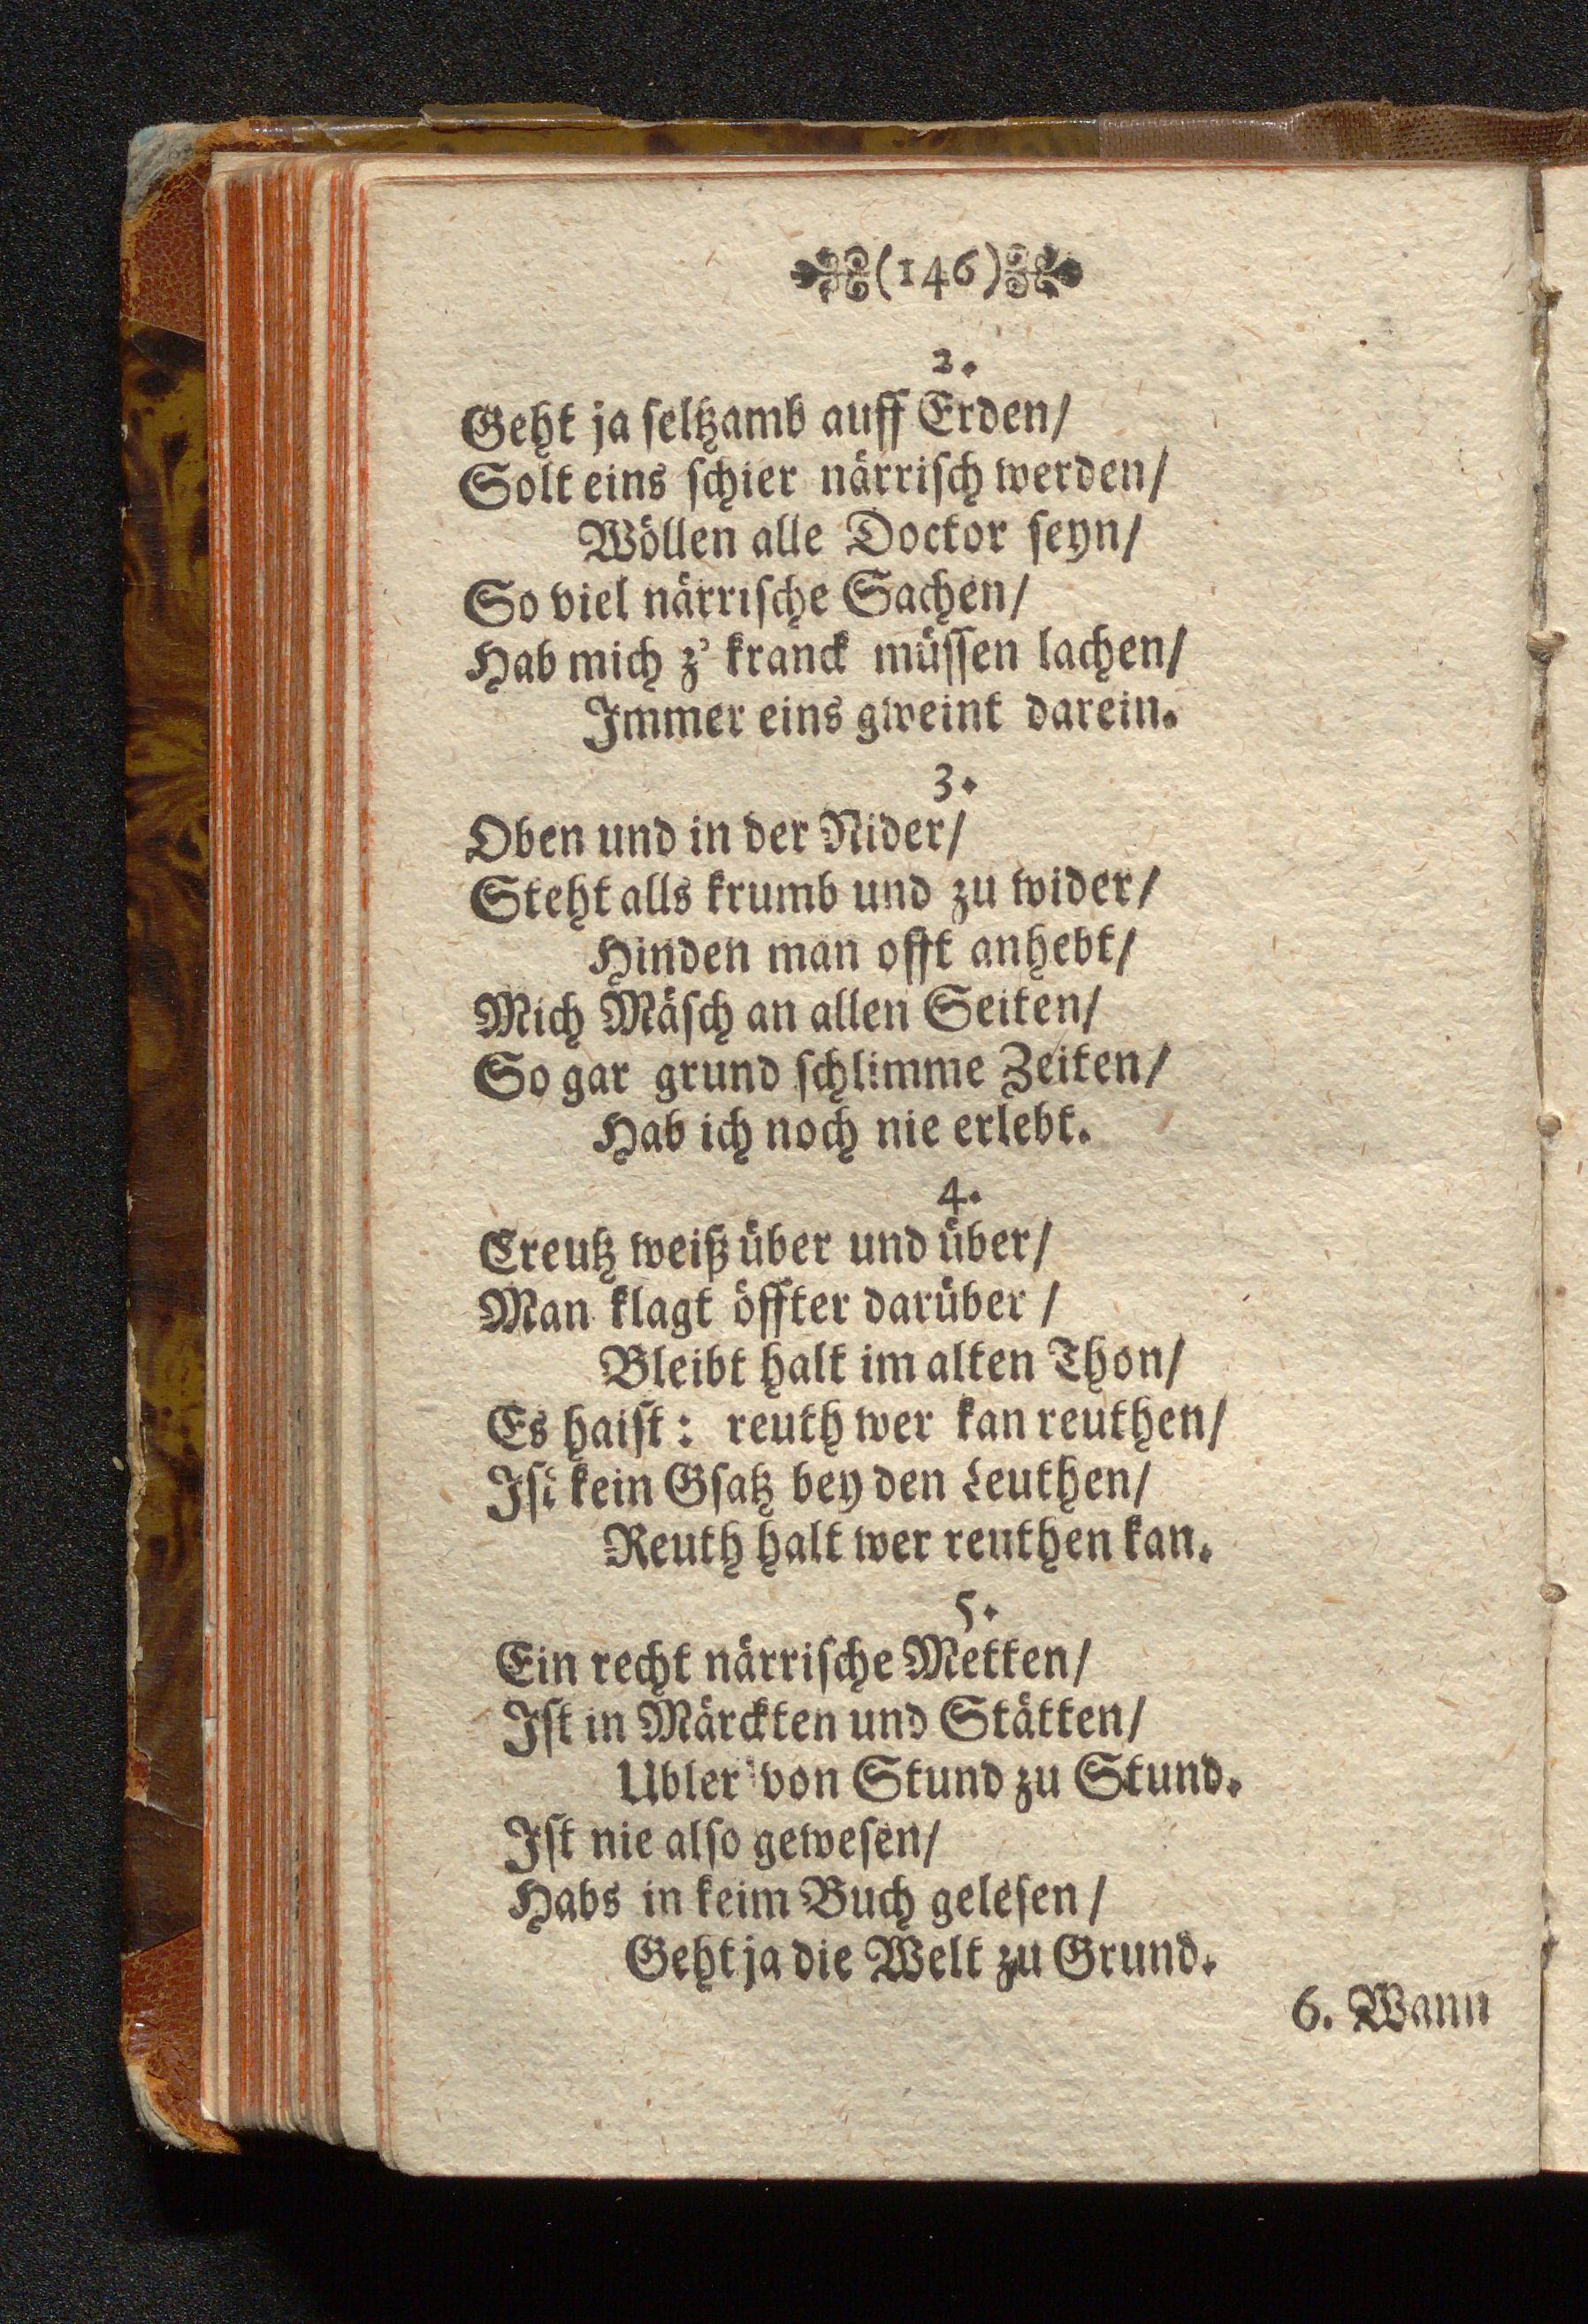 (146)
2.
Geht ja seltzamb auff Erden/
Solt eins schier närrisch werden/
Wöllen alle Doctor seyn/
So viel närrische Sachen/
Hab mich z' kranck müssen lachen/
Immer eins gweint darein.
3.
Oben und in der Nider/
Steht alls krumb und zu wider/
Hinden man offt anhebt/
Mich Mäsch an allen Seiten/
So gar grund schlimme Zeiten/
Hab ich noch nie erlebt.
4.
Creutz weiß über und über/
Man klagt öffter darüber /
Bleibt halt im alten Thon/
Es haist: reuth wer kan reuthen/
Ist kein Gsatz bey den Leuthen/
Reuth halt wer reuthen kan.
5.
Ein recht närrische Metten/
Ist in Märckten und Stätten/
Ubler von Stund zu Stund.
Ist nie also gewesen/
Habs in keim Buch gelesen/
Geht ja die Welt zu Grund.
6. Wann